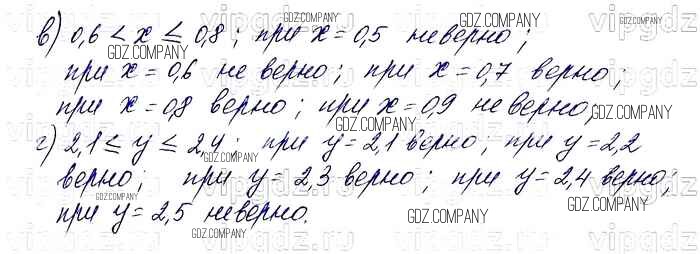 в) 0,6 < x ≤ 0,8; при x = 0,5 неверно;
при x = 0,6 не верно; при x = 0,7 верно;
при x = 0,8 верно; при x = 0,9 неверно,
г) 2,1 ≤ y ≤ 2,4; при y = 2,1 верно; при y = 2,2
верно; при y = 2,3 верно; при y = 2,4 верно;
при y = 2,5 неверно.
GDZ.COMPANY
GDZ.COMPANY
GDZ.COMPANY
GDZ.COMPANY
GDZ.COMPANY
GDZ.COMPANY
GDZ.COMPANY
GDZ.COMPANY
GDZ.COMPANY
GDZ.COMPANY
GDZ.COMPANY
vipgdz.ru